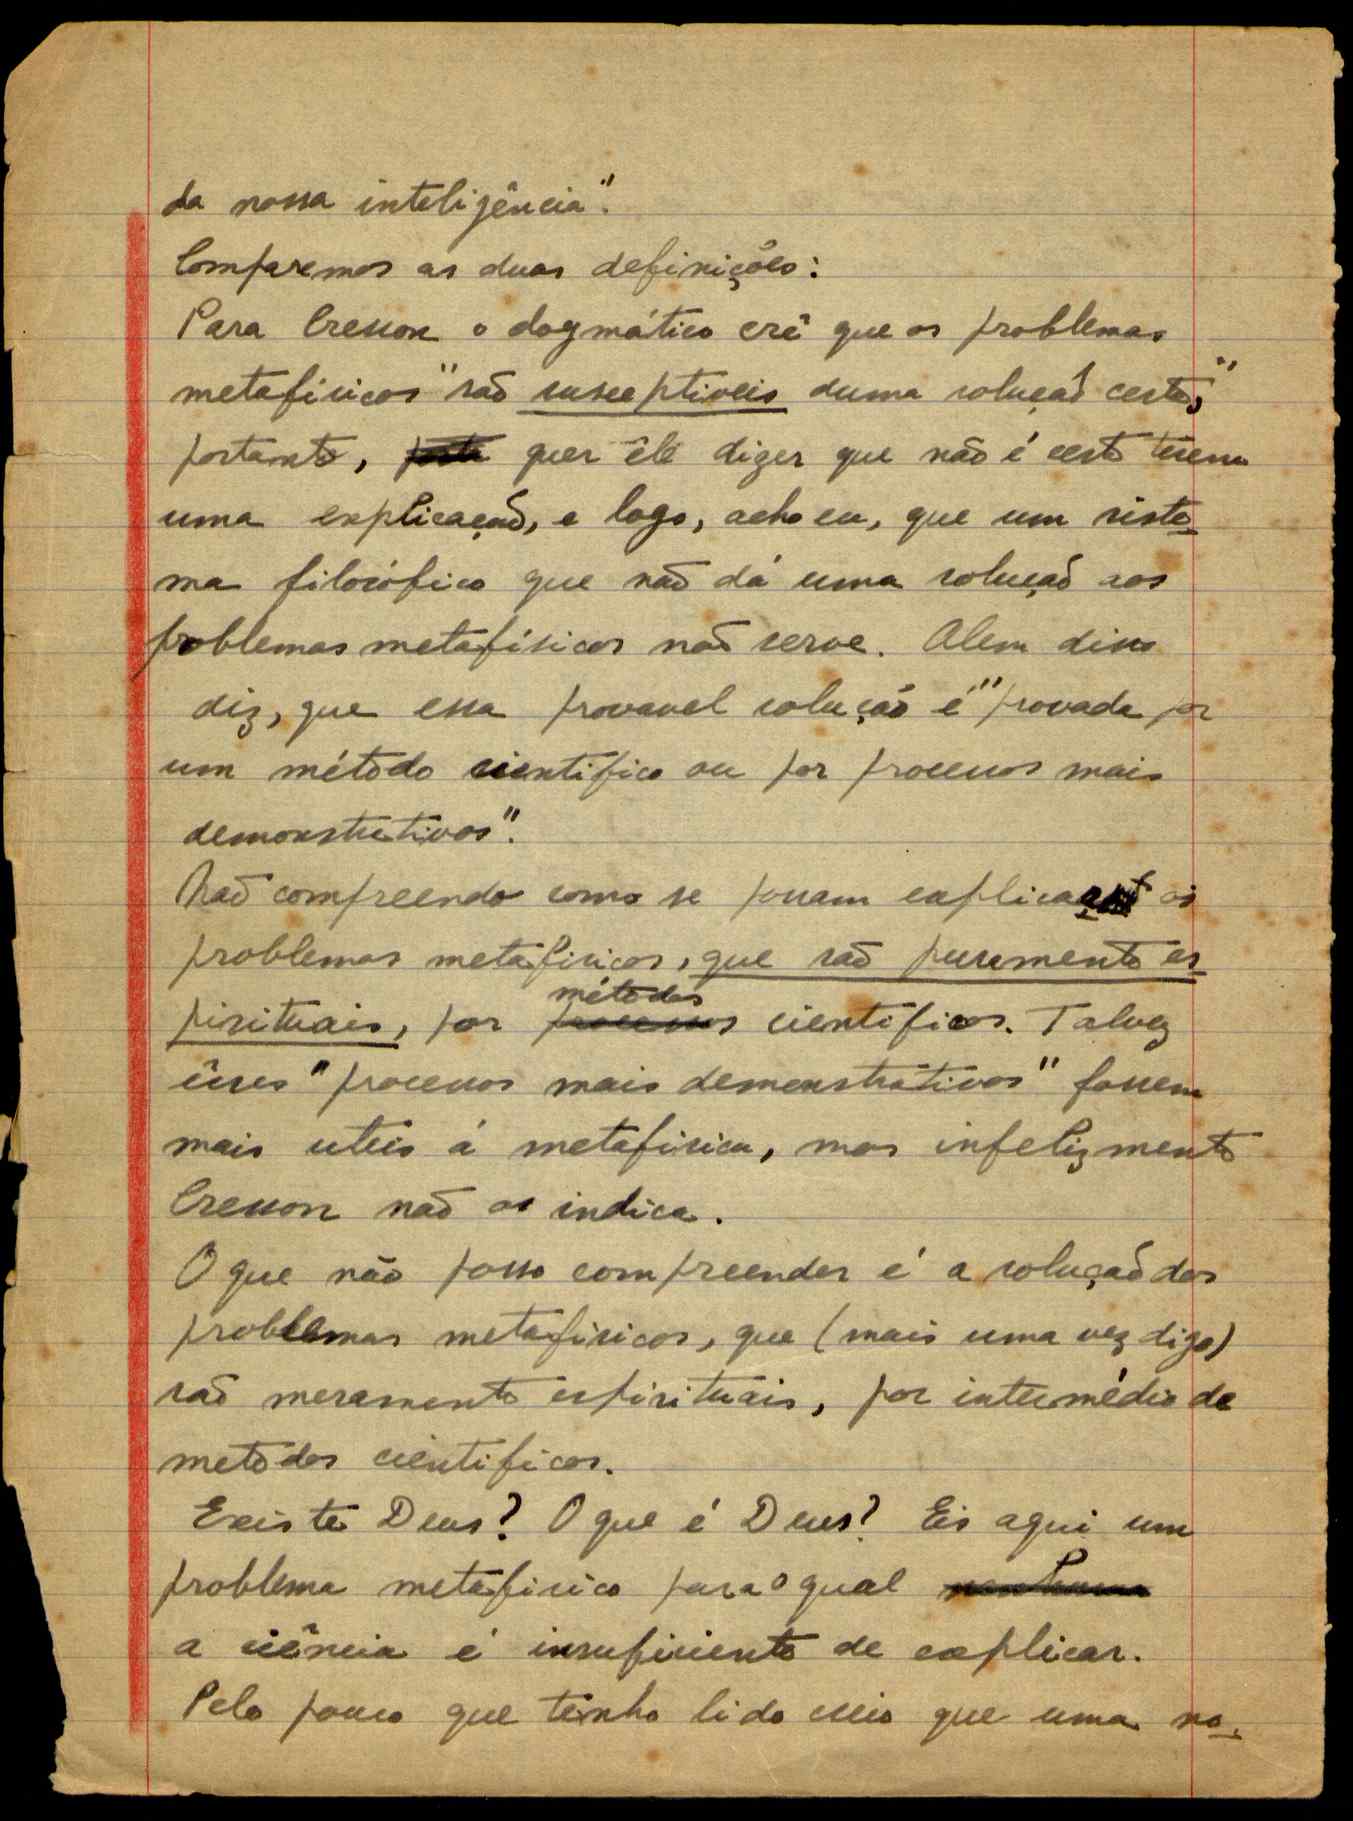 da nossa inteligência".
Comparemos as duas definições:
Para Cresson o dogmático crê que os problemas
metafísicos "são susceptiveis duma solução certa,"
portanto, quer êle dizer que não é certo terem
uma explicação, e logo, acho eu, que um siste-
ma filosófico que não dá uma solução aos
problemas metafísicos não serve. Alem disso
diz, que essa provavel solução é "provada por
um método cientifico ou por processos mais
demonstrativos".
Não compreendo como se possam explicar os
problemas metafisicos, que são puramente es-
pirituais, por métodos cientificos. Talvez
êsses "processos mais demonstrativos" fossem
mais uteis á metafisica, mas infelizmente
Cresson não os indica.
O que não posso compreender é a solução dos
problemas metafisicos, que (mais uma vez digo)
são meramente espirituais, por intermédio de
metodos cientificos.
Existe Deus? O que é Deus? Eis aqui um
problema metafisico para o qual
a ciência é insuficiente de explicar.
Pelo pouco que tenho lido creio que uma no-